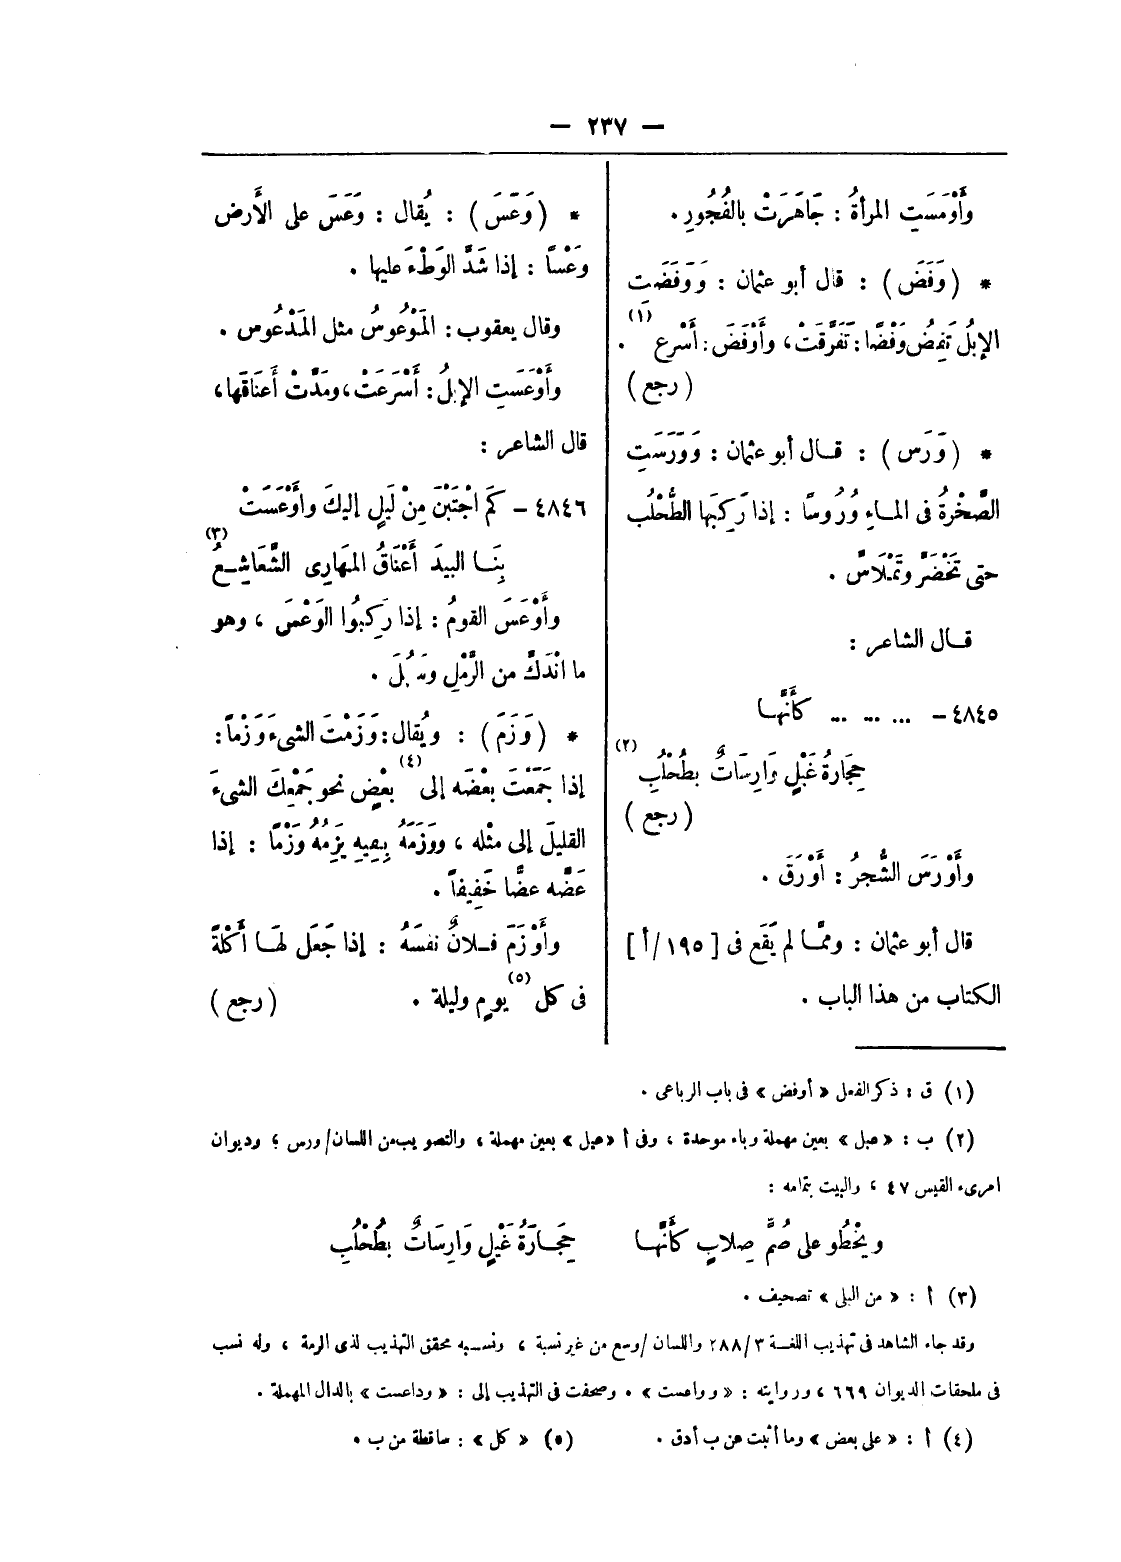 — ٢٣٧ —
وأَوْمَسَتِ المرأةُ : جَاهَرَتْ بالفُجُورِ.
* ( وَفَضَ ) : قال أبو عثمان : وَوَفَضَت
الإبلُ تَفِضُ وَفْضًا : تَفَرَّقَتْ، وأَوْفَضَ : أَسْرع (١) .
( رجع )
* ( وَرَس ) : قـال أبو عثمان : وَوَرَسَتِ
الصَّخْرةُ فى المـاءِ وُرُوسًا : إذا رَكِبَها الطُّحْلُب
حتى تَخْضَرَّ وتَمْلَاسَّ .
قـال الشاعر :
٤٨٤٥ – ... ... ... كأَنَّهـا
حِجَارةُ غَبْلٍ وَارِسَاتٌ بطُحْلُبِ (٢)
( رجع )
وأَوْرَسَ الشَّجرُ : أَوْرَقَ .
قال أبو عثمان : وممَّـا لم يَقَع فى [ ١٩٥/أ ]
الكتاب من هذا الباب .
* ( وَعَسَ ) : يُقال : وَعَسَ على الأَرض
وعْسًا : إذا شَدَّ الوَطْءَ عليها .
وقال يعقوب : المَوْعُوسُ مثل المَدْعُوس .
وأَوْعَسَتِ الإبلُ : أَسْرَعَتْ، ومَدَّتْ أَعنَاقَها،
قال الشاعر :
٤٨٤٦ – كَم اجْتَبْنَ مِنْ لَيلٍ إليكَ وأَوْعَسَتْ
بِنَـا البيدَ أَعْنَاقُ المهَارِى الشَّعَاشِعُ (٣)
وأَوْعَسَ القومُ : إذا رَكِبُوا الوَعْسَ ، وهو
ما انْدَكَّ من الرَّمْلِ وسَهُلَ .
* ( وَزَمَ ) : ويُقال : وَزَمْتَ الشىءَ وَزْماً :
إذا جَمَعْتَ بعْضَه إلى (٤) بعْضٍ نحو جَمْعِكَ الشىءَ
القليلَ إلى مثْله ، ووَزَمَهُ بِفِيهِ يَزِمُهُ وَزْمًا : إذا
عَضَّه عضًّا خَفِيفاً .
وأَوْزَمَ فـلانٌ نفسَهُ : إذا جَعَل لهَـا أَكْلةً
فى كل (٥) يومٍ وليلة . ( رجع )
(١) ق : ذكر الفعل « أوفض » فى باب الرباعى .
(٢) ب : « عبل » بعين مهملة وباء موحدة ، وفى أ « عيل » بعين مهملة ، والتصويب من اللسان/ورس ؛ وديوان
امرىء القيس ٤٧ ، والبيت بتمامه :
ويخْطُو على صُمَّ صِلابٍ كأَنَّهـا حِجَـارَةُ غَيْلٍ وَارِسَاتٌ بطُحْلُبِ
(٣) أ : « من البلى » تصحيف .
وقد جاء الشاهد فى تهذيب اللغـة ٢٨٨/٣ واللسان /وسع من غير نسبة ، ونسـبه محقق التهذيب لذى الرمة ، وله نسب
فى ملحقات الديوان ٦٦٩ ، وروايته : « وواعست » . وصحفت فى التهذيب إلى : « وداعست » بالدال المهملة .
(٤) أ : « على بعض » وما أثبت عن ب أدق . (٥) « كل » : ساقطة من ب .